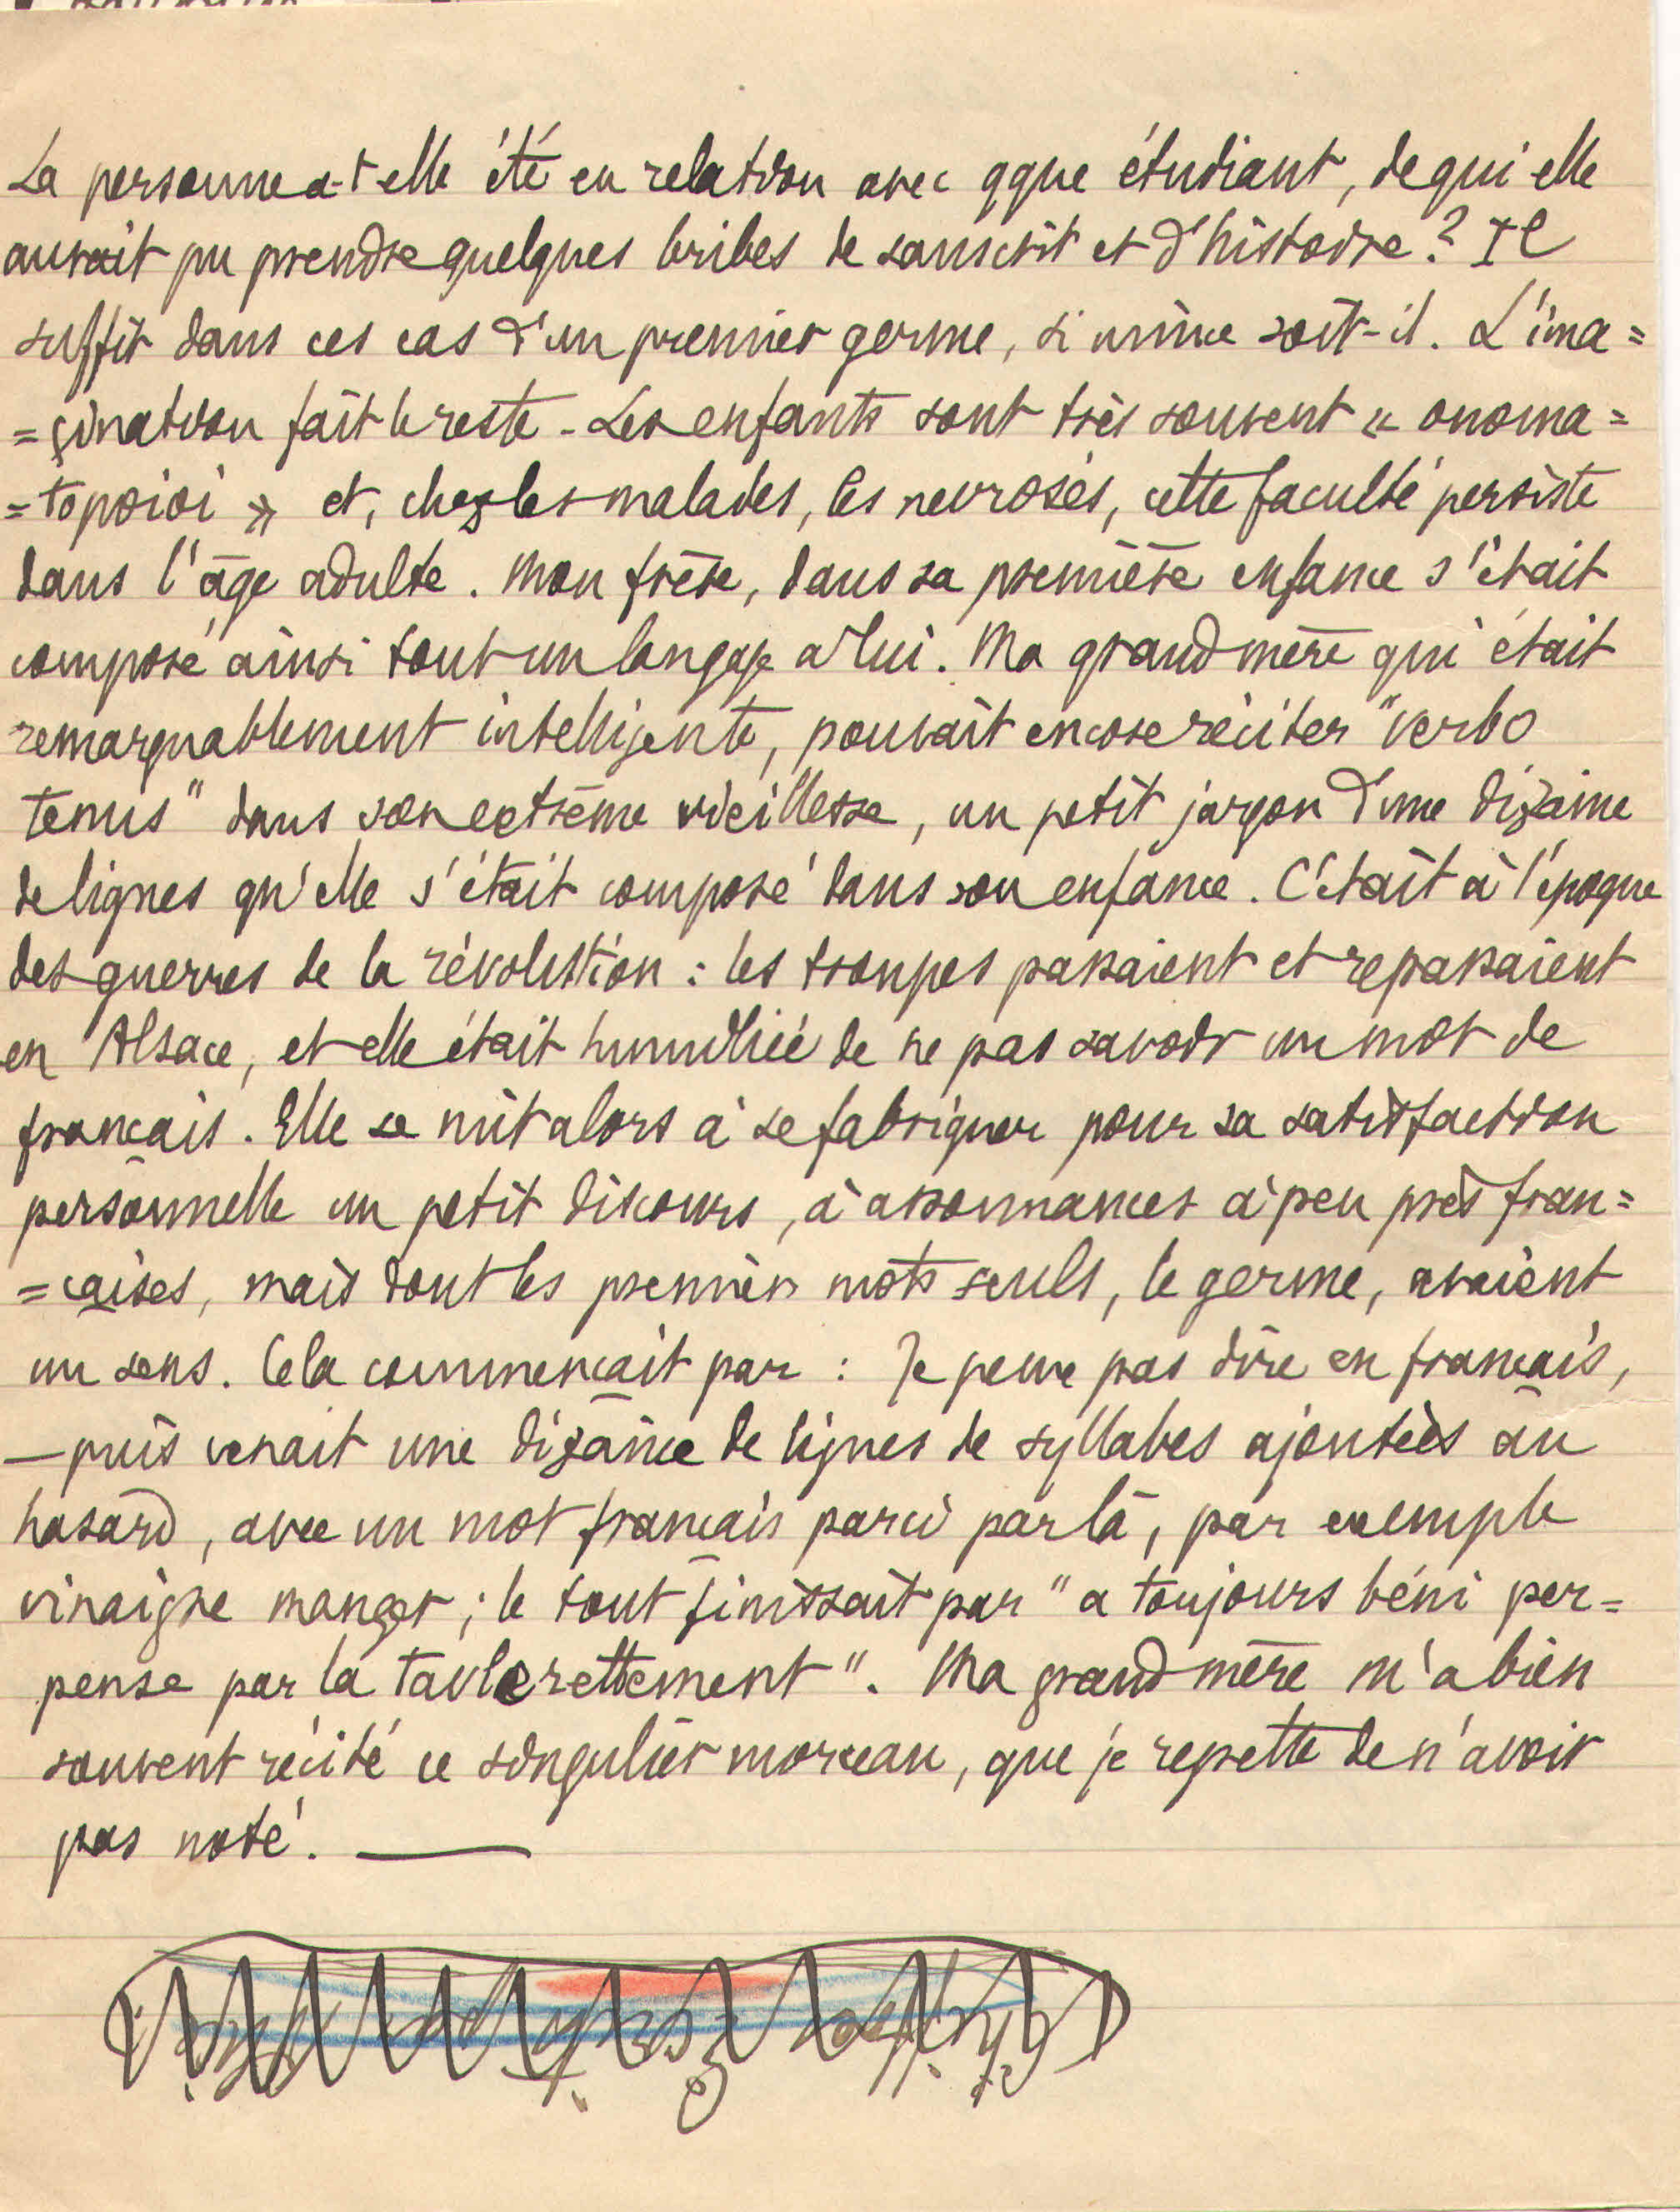 La personne a-t-elle été en relation avec qque étudiant, de qui elle
aurait pu prendre quelques bribes de sanscrit et d'histoire? Il
suffit dans ces cas d'un premier germe, si mince soit-il. L'ima=
=gination fait le reste - Les enfants sont très souvent « onoma=
=topoioi » et, chez les malades, les nevrosés, cette faculté persiste
dans l'âge adulte. Mon frère, dans sa première enfance s'était
composé ainsi tout un langage à lui. Ma grand mère qui était
remarquablement intelligente, pouvait encore réciter "verbo
tenus" dans son extrême vieillesse, un petit jargon d'une dizaine
de lignes qu'elle s'était composé dans son enfance. C'était à l'époque
des guerres de la révolution : les troupes passaient et repassaient
en Alsace, et elle était humiliée de ne pas savoir un mot de
français. Elle se mit alors à se fabriquer pour sa satisfaction
personnelle un petit discours, à assonnances à peu près fran=
=çaises, mais dont les premiers mots seuls, le germe, avaient
un sens. Cela commençait par : Je peux pas dire en français,
— puis venait une dizaine de lignes de syllabes ajoutées au
hasard, avec un mot français par ci par là, par exemple
vinaigre manger ; le tout finissait par "a toujours béni per=
pense par la taulerettement". Ma grand mère m'a bien
souvent récité ce singulier morceau, que je regrette de n'avoir
pas noté. —